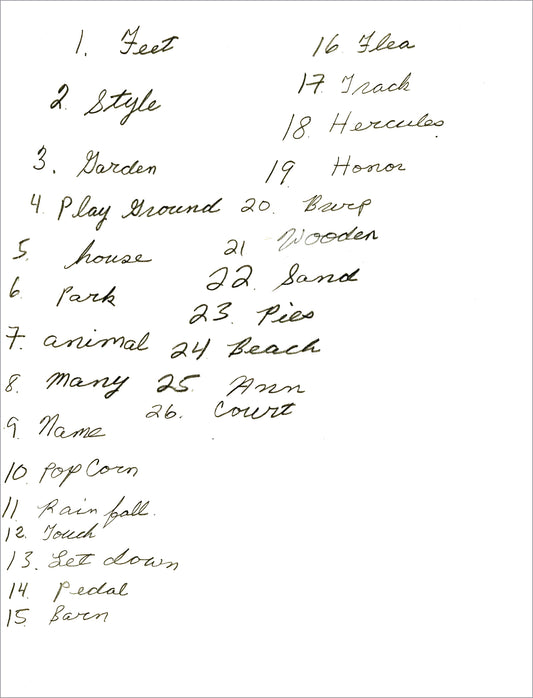 1. Feet
2. Style
3. Garden
4. Play Ground
5. house
6. Park
7. animal
8. Many
9. Name
10. Pop Corn
11. Rain fall.
12. Touch
13. Let down
14. Pedal
15. Barn
16. Flea
17. Track
18. Hercules
19. Honor
20. Burp
21 Wooden
22. Sand
23. Pies
24 Beach
25. Ann
26. Court